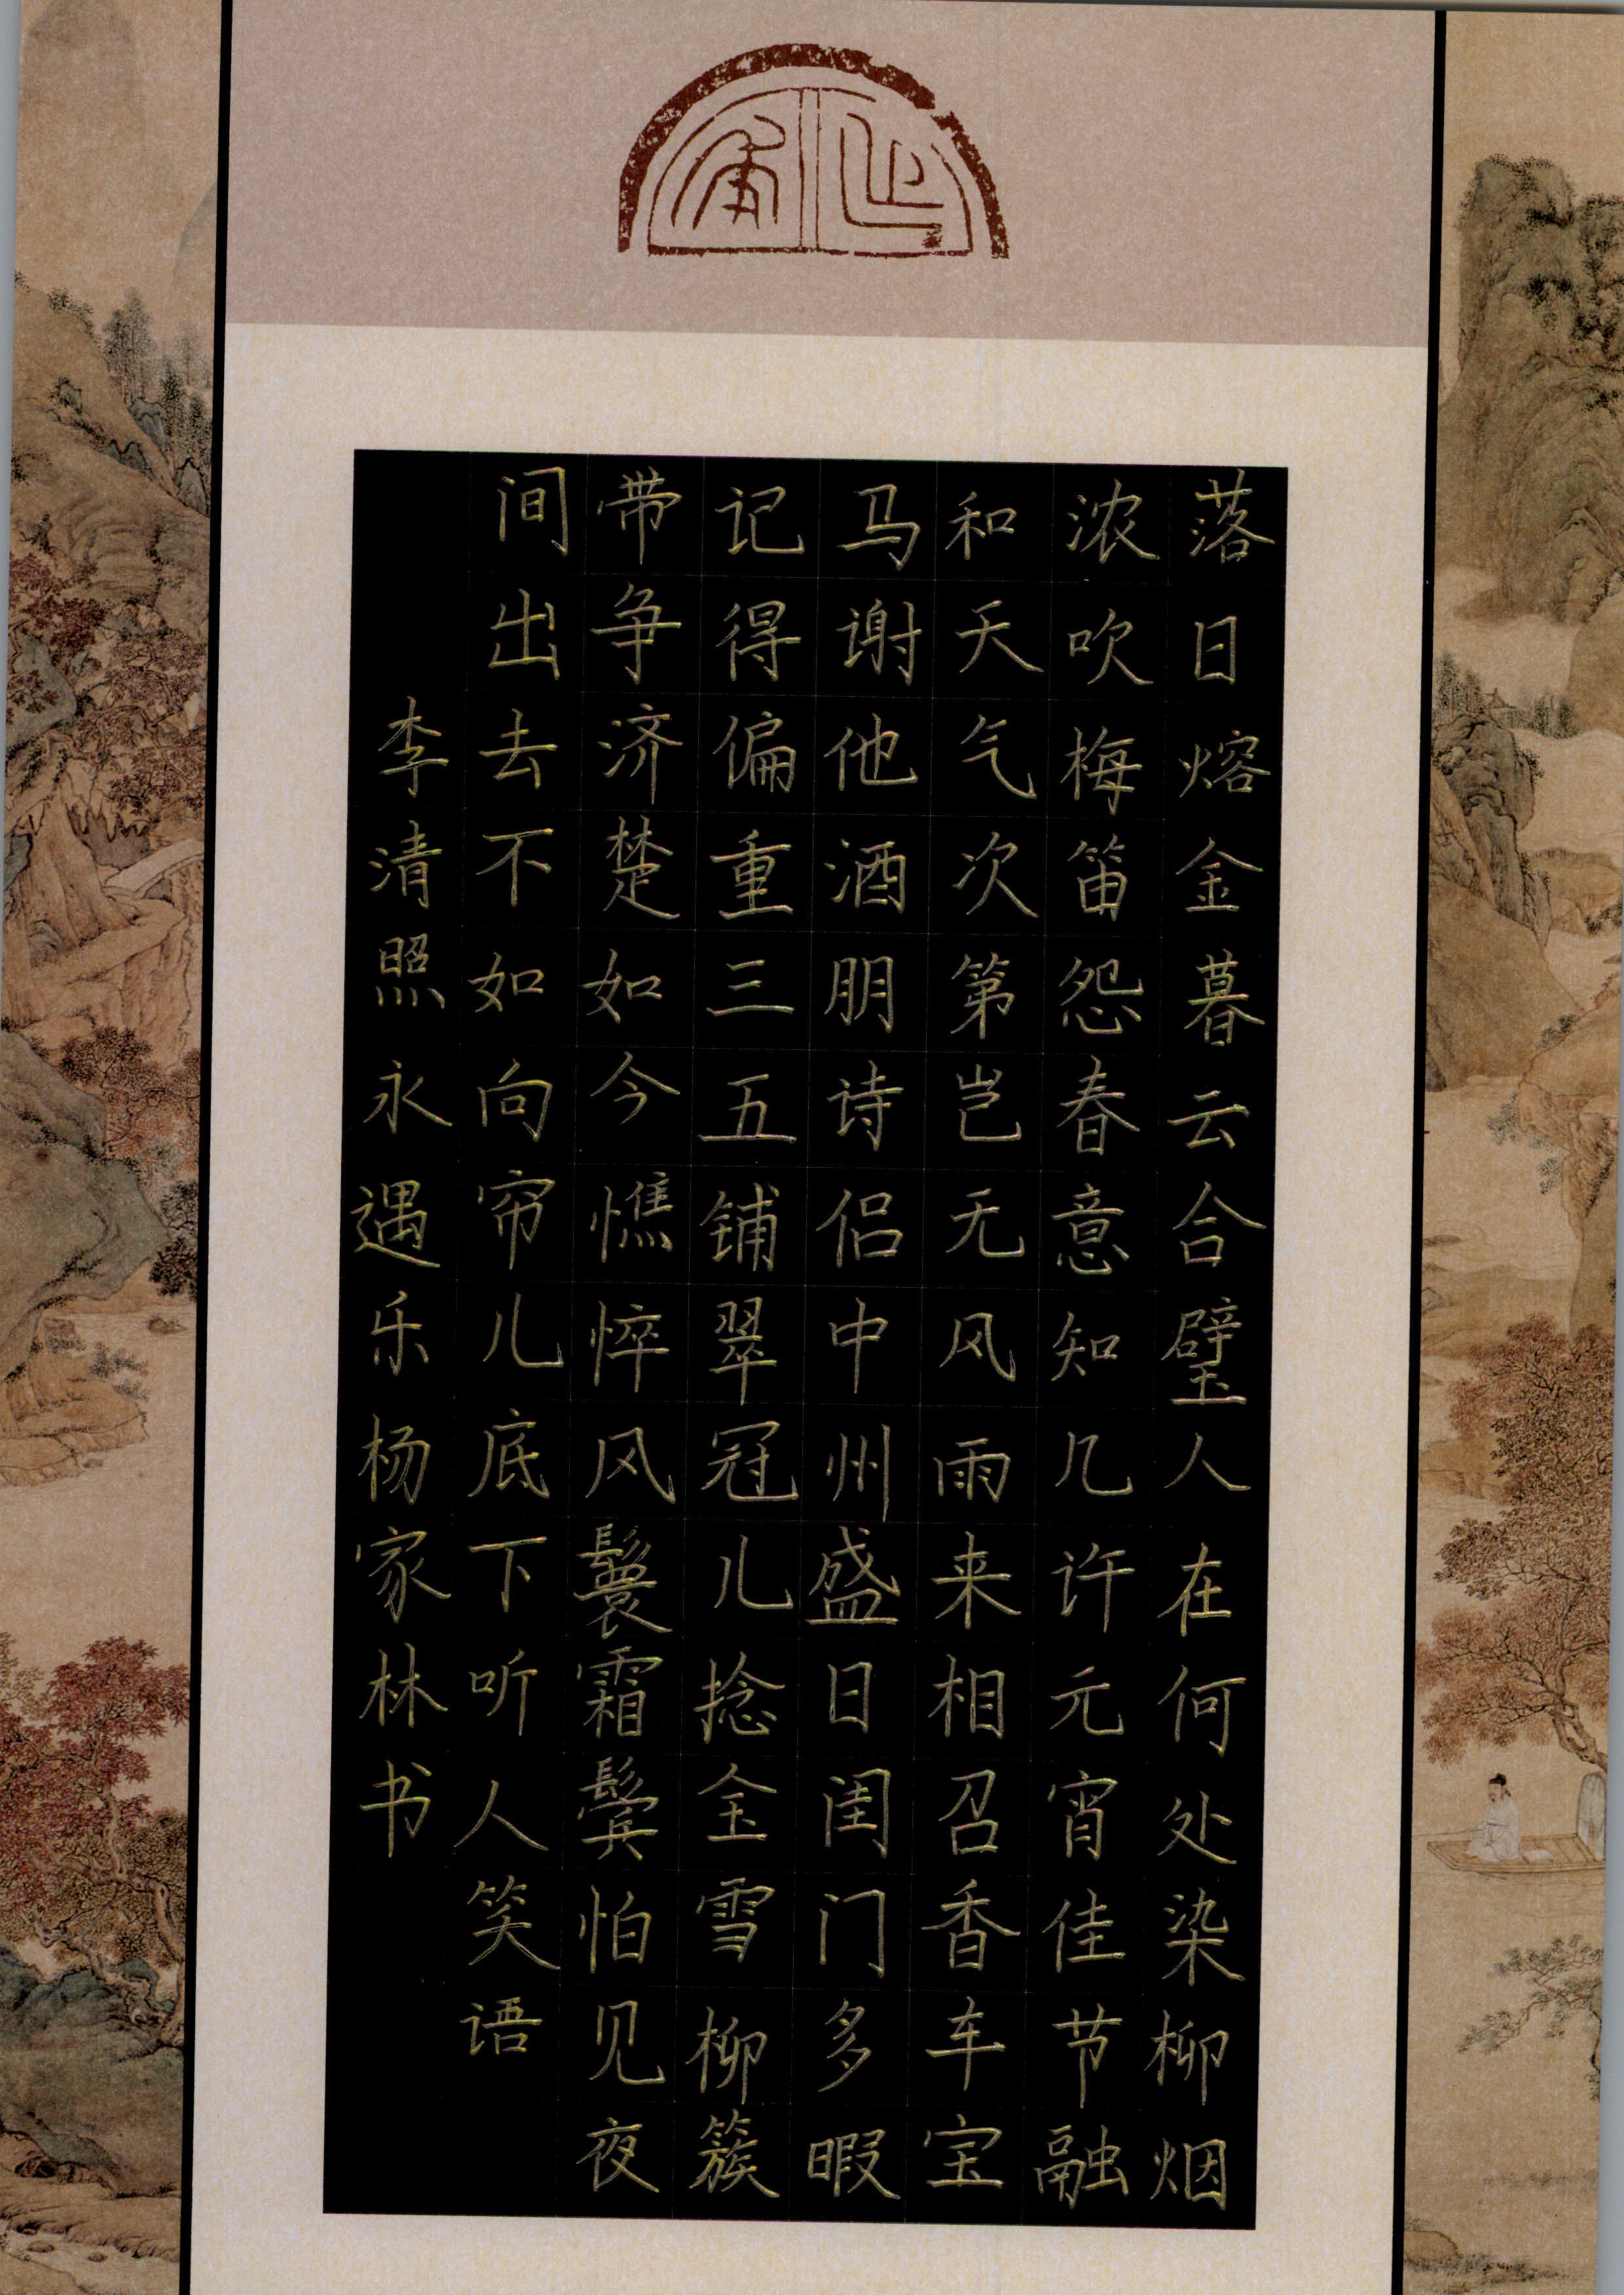 落日熔金暮云合璧人在何处染柳烟
浓吹梅笛怨春意知几许元宵佳节融
和天气次第岂无风雨来相召香车宝
马谢他酒朋诗侣中州盛日闺门多暇
记得偏重三五铺翠冠儿捻金雪柳簇
带争济楚如今憔悴风鬟霜鬓怕见夜
间出去不如向帘儿底下听人笑语
李清照永遇乐杨家林书